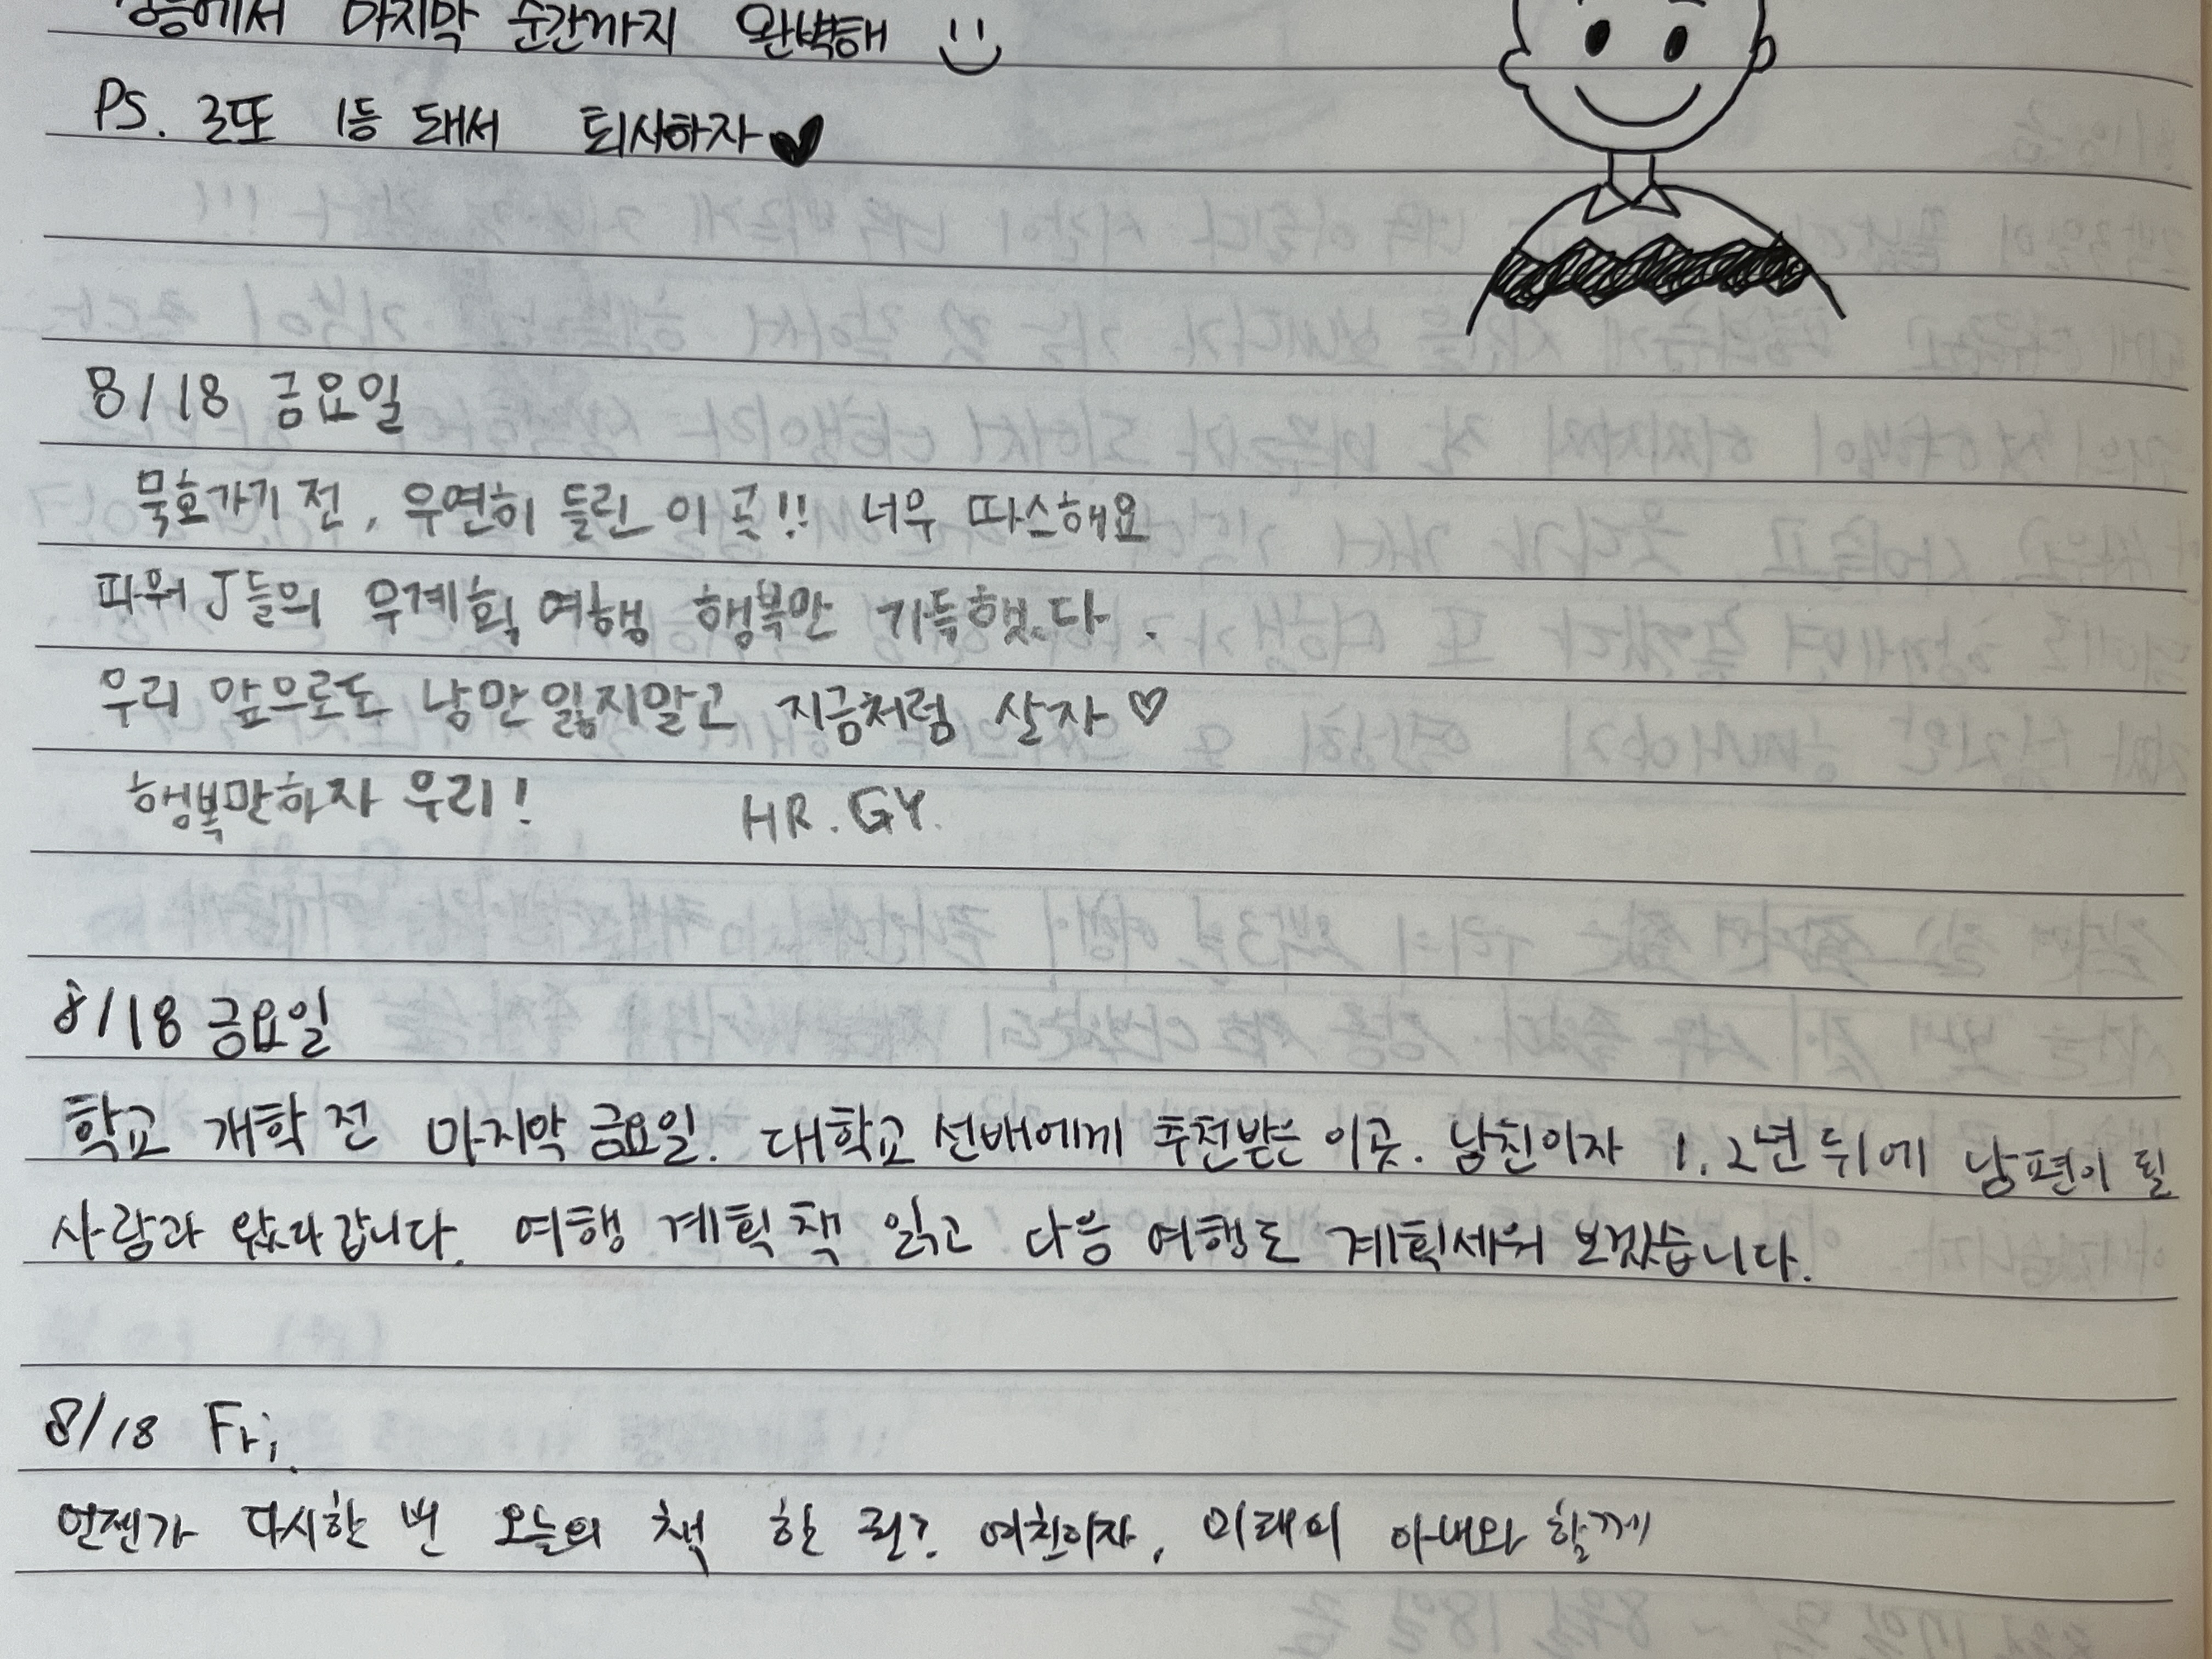 마지막 순간까지 완벽해
PS. 로또 1등 돼서 퇴사하자
8/18 금요일
묵호가기 전, 우연히 들린 이 곳!! 너무 따스해요
파워J들의 무계획 여행 행복만 가득했다.
우리 앞으로도 낭만 잃지말고 지금처럼 살자♡
행복만하자 우리!
HR. GY.
8/18 금요일
학교 개학 전 마지막 금요일. 대학교 선배에게 추천받은 이곳. 남친이자 1, 2년 뒤에 남편이 될
사람과 왔다 갑니다. 여행 계획 책 읽고 다음 여행도 계획세워 보겠습니다.
8/18 Fri.
언젠가 다시한 번 오늘의 책 한 권? 여친이자, 미래의 아내와 함께